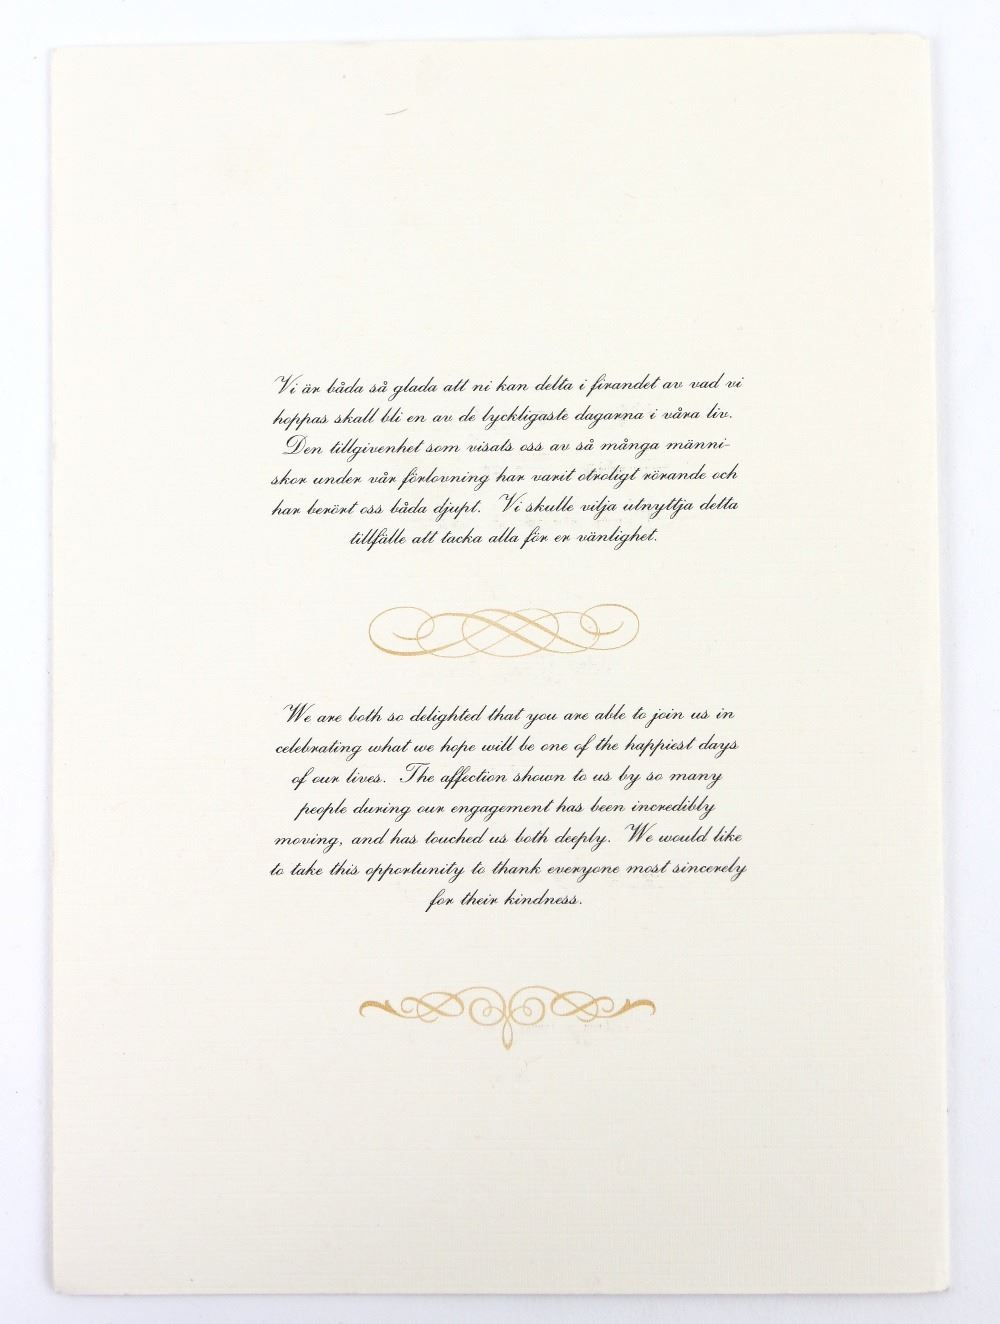 Vi är båda så glada att ni kan delta i firandet av vad vi
hoppas skall bli en av de lyckligaste dagarna i våra liv.
Den tillgivenhet som visats oss av så många männi-
skor under vår förlovning har varit otroligt rörande och
har berört oss båda djupt. Vi skulle vilja utnyttja detta
tillfälle att tacka alla för er vänlighet.
We are both so delighted that you are able to join us in
celebrating what we hope will be one of the happiest days
of our lives. The affection shown to us by so many
people during our engagement has been incredibly
moving, and has touched us both deeply. We would like
to take this opportunity to thank everyone most sincerely
for their kindness.